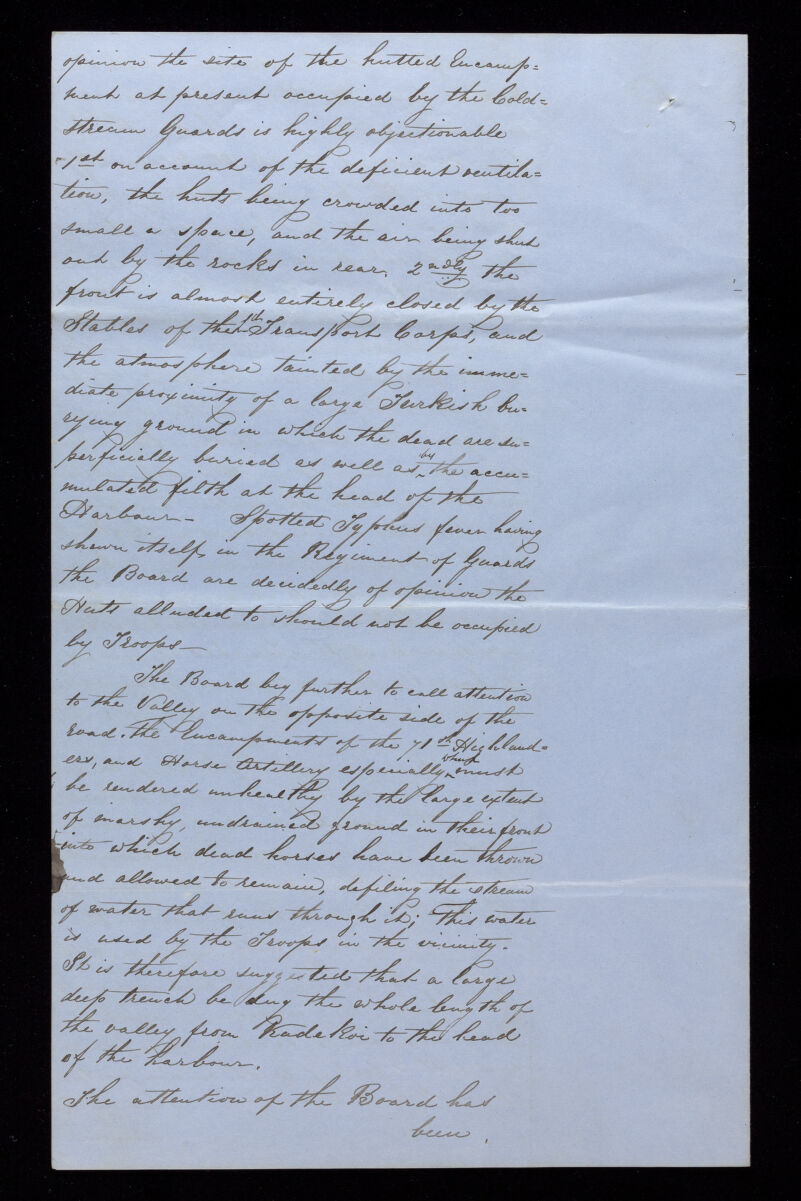 opinion the site of the hutted Encamp=
ment at present occupied by the Cold=
stream Guards is highly objectionable
1st on account of the deficient ventila=
tion, the huts being crowded into too
small a space, and the air being shut
out by the rocks in rear. 2ndly the
front is almost entirely closed by the
Stables of the Transport Corps, and
the atmosphere tainted by the imme=
diate proximity of a large Turkish bu=
rying ground in which the dead are su=
perficially buried as well as by the accu=
mulated filth at the head of the
Harbour - Spotted Typhus fever having
shewn itself in the Regiment of Guards
the Board are decidedly of opinion the
Huts alluded to should not be occupied
by Troops -
The Board beg further to call attention
to the Valley on the opposite side of the
road. The Encampments of the 71st Highland=
ers, and Horse Artillery especially, which must
be rendered unhealthy by the large extent
of marshy, undrained ground in their front
into which dead horses have been thrown
and allowed to remain, defiling the stream
of water that runs through it; This water
is used by the Troops in the vicinity.
It is therefore suggested that a large
deep trench be dug the whole length of
the valley from Kadekoi to the head
of the harbour.
The attention of the Board has
been